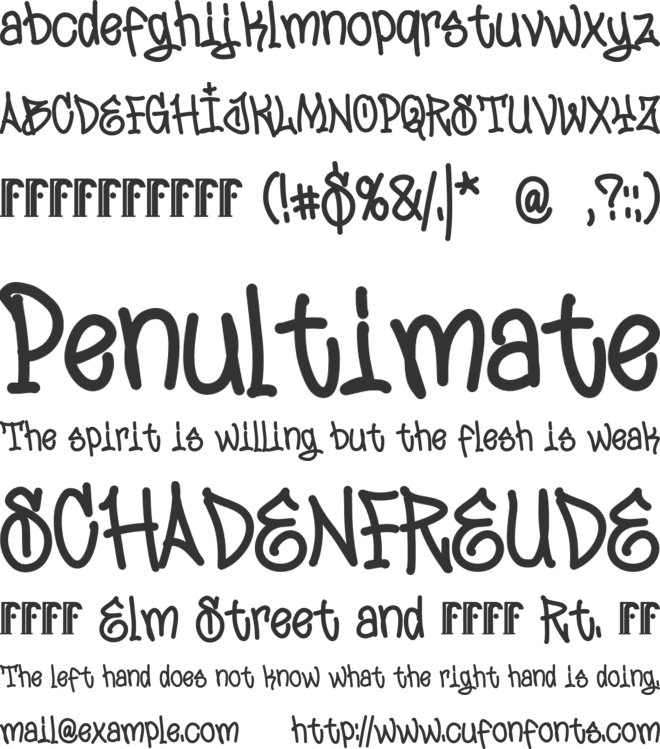 abcdefghijklmnopqrstuvwxyz
ABCDEFGHIJKLMNOPQRSTUVWXYZ
FFFFFFFFFF (!#$%&/.|* @ ,?:;)
Penultimate
The spirit is willing but the flesh is weak
SCHADENFREUDE
FFFF Elm Street and FFFF Rt. FF
The left hand does not know what the right hand is doing.
mail@example.com http://www.cufonfonts.com